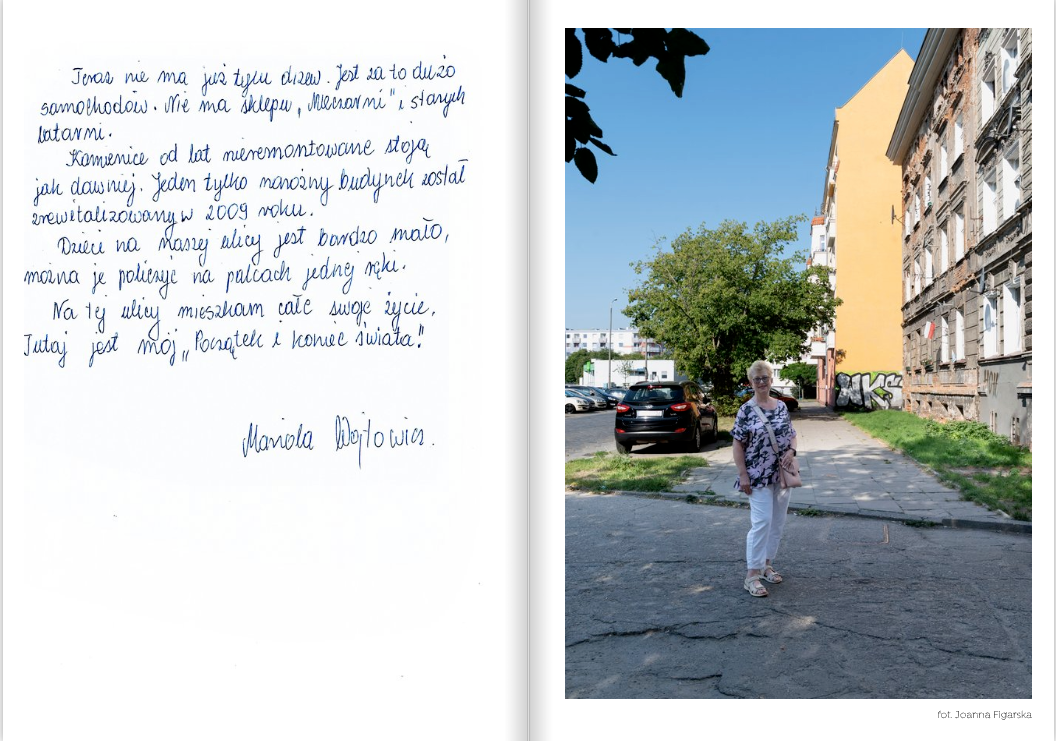 Teraz nie ma już tylu drzew. Jest za to dużo
samochodów. Nie ma sklepu „Mleczarni" i starych
latarni.
Kamienice od lat nieremontowane stoją
jak dawniej. Jeden tylko narożny budynek został
zrewitalizowany w 2009 roku.
Dzieci na naszej ulicy jest bardzo mało,
można je policzyć na palcach jednej ręki.
Na tej ulicy mieszkam całe swoje życie.
Tutaj jest mój „Początek i koniec świata".
Mariola Wojtowicz.
fot. Joanna Figarska